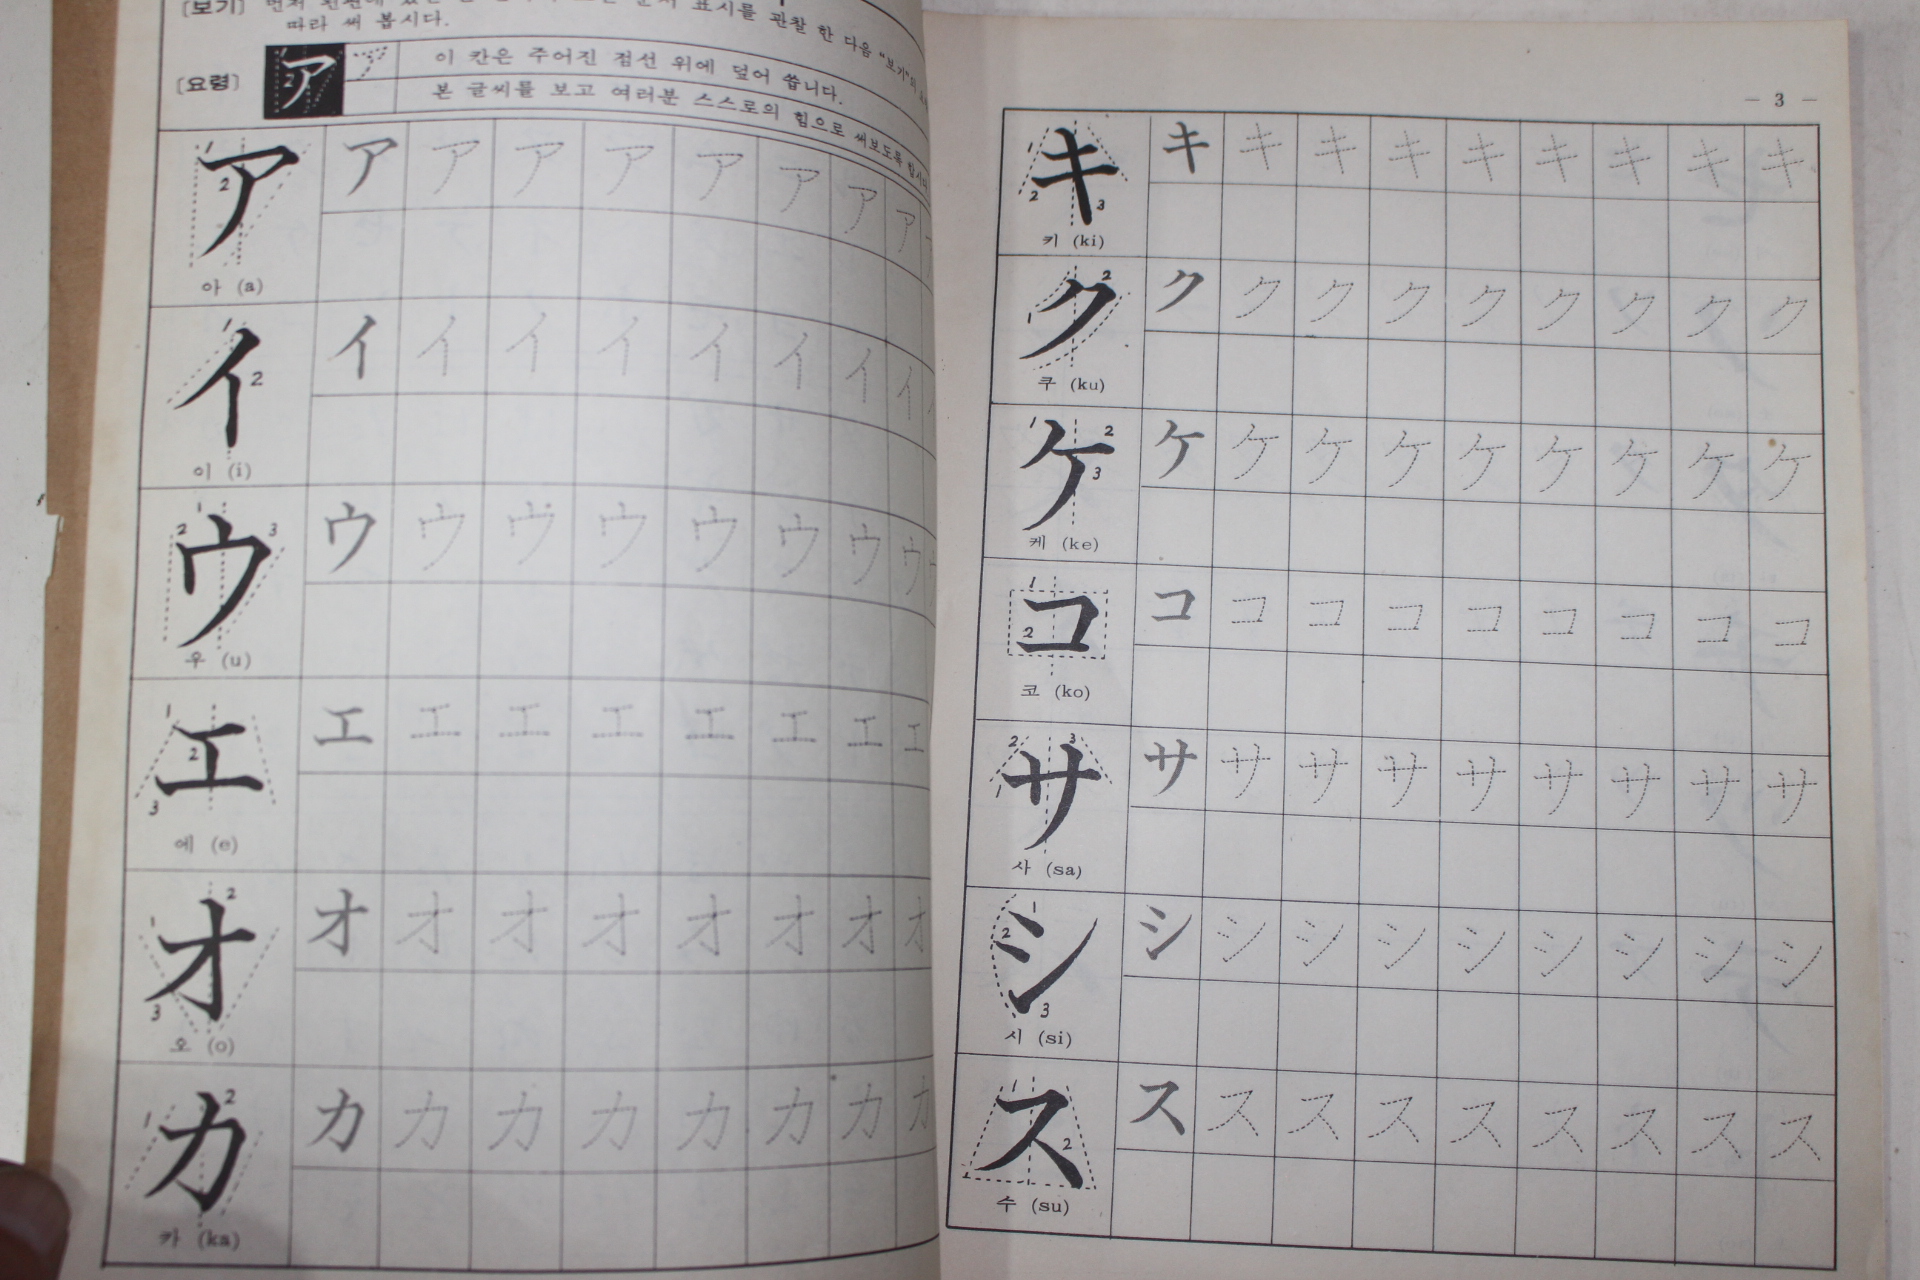 [보기]
표시를 관찰 한 다음 "보기"의
따라 써 봅시다.
[요령]
ア
2
ア
이 칸은 주어진 점선 위에 덮어 씁니다.
본 글씨를 보고 여러분 스스로의 힘으로 써보도록 합시다.
1
2
ア ア ア ア ア ア ア ア ア
아 (a)
1
2
イ イ イ イ イ イ イ イ イ
이 (i)
1
2 3
ウ ウ ウ ウ ウ ウ ウ ウ ウ
우 (u)
1
2
3
エ エ エ エ エ エ エ エ エ
에 (e)
1 2
3
オ オ オ オ オ オ オ オ オ
오 (o)
1 2
カ カ カ カ カ カ カ カ カ
카 (ka)
— 3 —
1
2 3
キ キ キ キ キ キ キ キ キ キ
키 (ki)
1 2
ク ク ク ク ク ク ク ク ク ク
쿠 (ku)
1 2
3
ケ ケ ケ ケ ケ ケ ケ ケ ケ ケ
케 (ke)
1
2
コ コ コ コ コ コ コ コ コ コ
코 (ko)
2 3
1
サ サ サ サ サ サ サ サ サ サ
사 (sa)
1
2
3
シ シ シ シ シ シ シ シ シ シ
시 (si)
1
2
ス ス ス ス ス ス ス ス ス ス
수 (su)